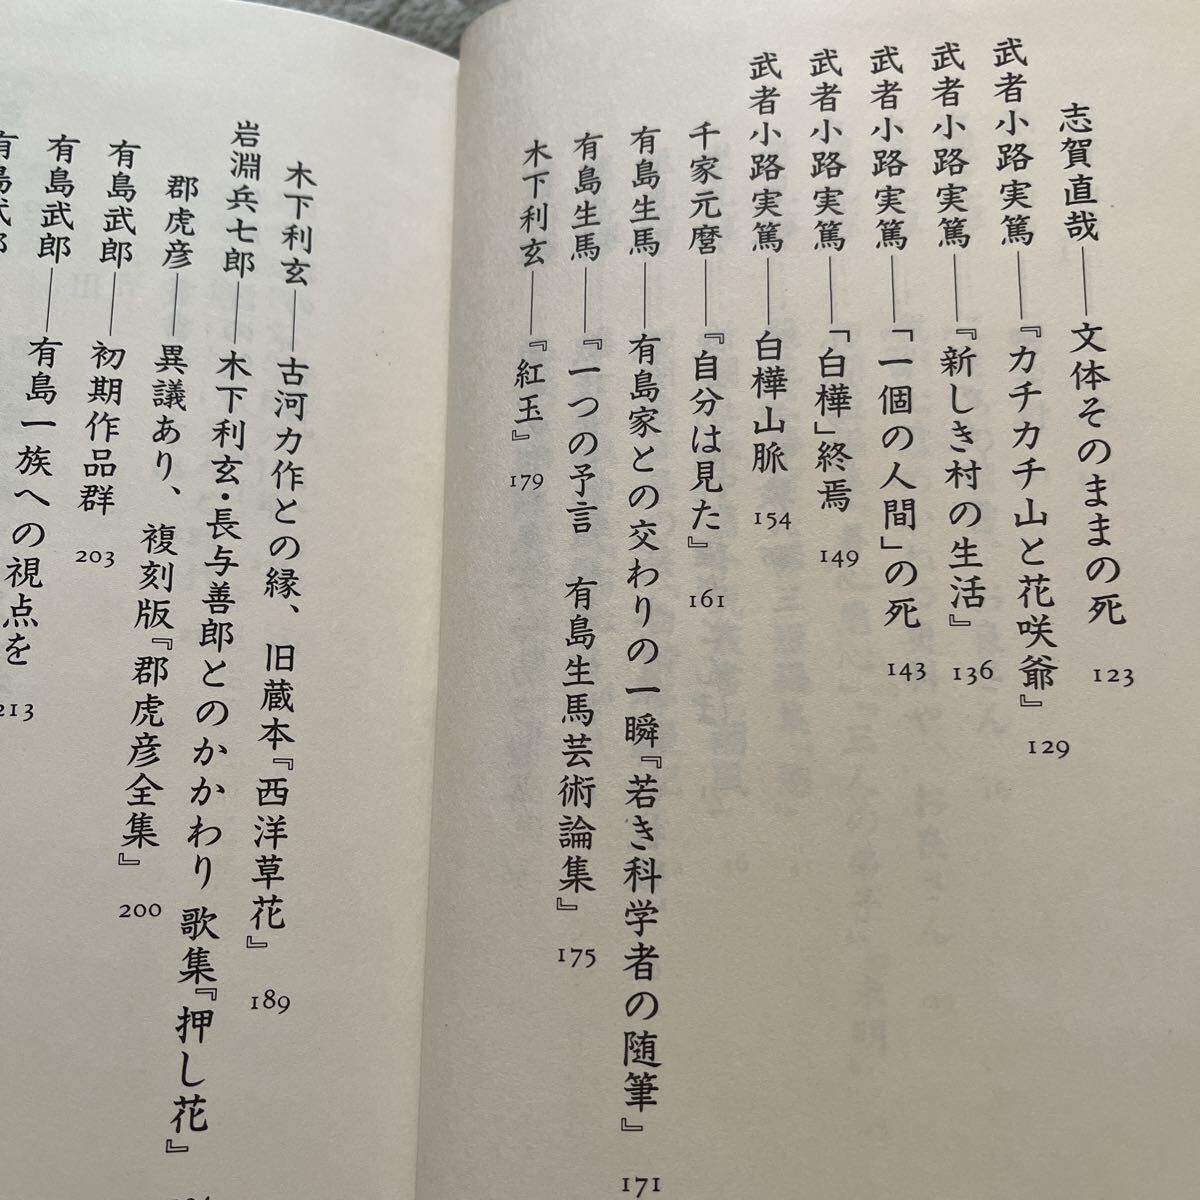 志賀直哉――文体そのままの死 123
武者小路実篤――『カチカチ山と花咲爺』 129
武者小路実篤――『新しき村の生活』 136
武者小路実篤――「一個の人間」の死 143
武者小路実篤――「白樺」終焉 149
武者小路実篤――白樺山脈 154
千家元麿――『自分は見た』 161
有島生馬――有島家との交わりの一瞬『若き科学者の随筆』 171
有島生馬――『一つの予言 有島生馬芸術論集』 175
木下利玄――『紅玉』 179
木下利玄――古河力作との縁、旧蔵本『西洋草花』 189
岩淵兵七郎――木下利玄・長与善郎とのかかわり 歌集『押し花』
郡虎彦――異議あり、複刻版『郡虎彦全集』 200
有島武郎――初期作品群 203
有島武郎――有島一族への視点を 213
有島武郎